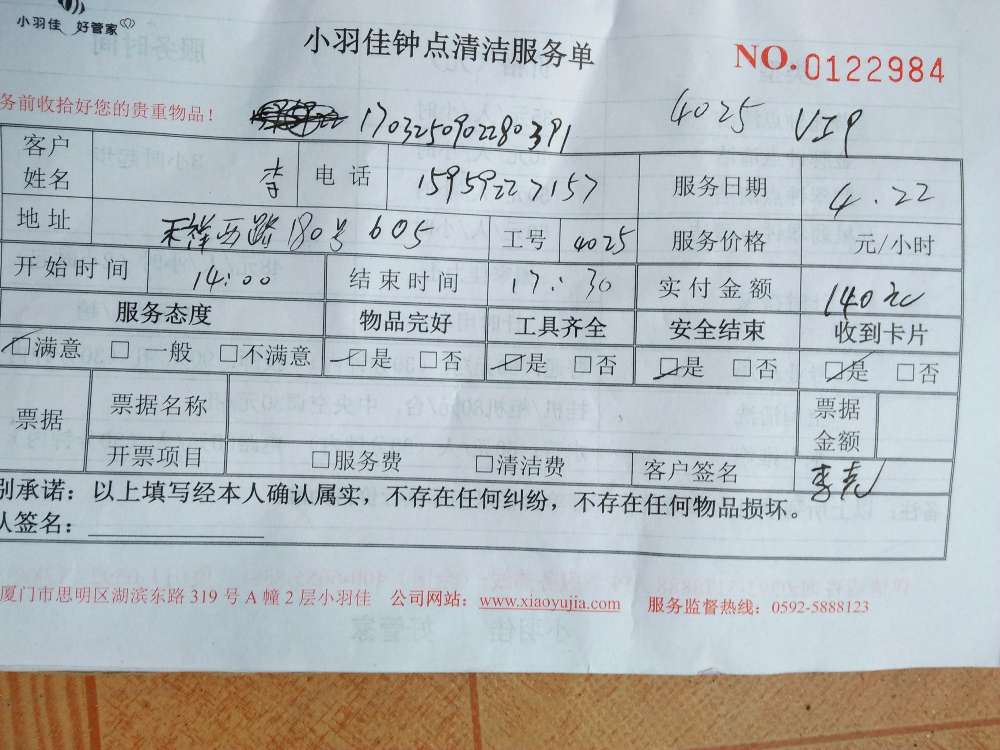 小羽佳 好管家
小羽佳钟点清洁服务单
NO.0122984
务前收拾好您的贵重物品！
1703250902280391 4025 VIP
客户姓名 李 电话 15959227157 服务日期 4.22
地址 祥西路180号605 工号 4025 服务价格 元/小时
开始时间 14:00 结束时间 17:30 实付金额 140元
服务态度 物品完好 工具齐全 安全结束 收到卡片
□满意 □一般 □不满意 □是 □否 □是 □否 □是 □否 □是 □否
票据 票据名称 票据金额
开票项目 □服务费 □清洁费 客户签名 李
别承诺：以上填写经本人确认属实，不存在任何纠纷，不存在任何物品损坏。
人签名：
厦门市思明区湖滨东路 319 号 A 幢 2 层小羽佳 公司网站：www.xiaoyujia.com 服务监督热线：0592-5888123